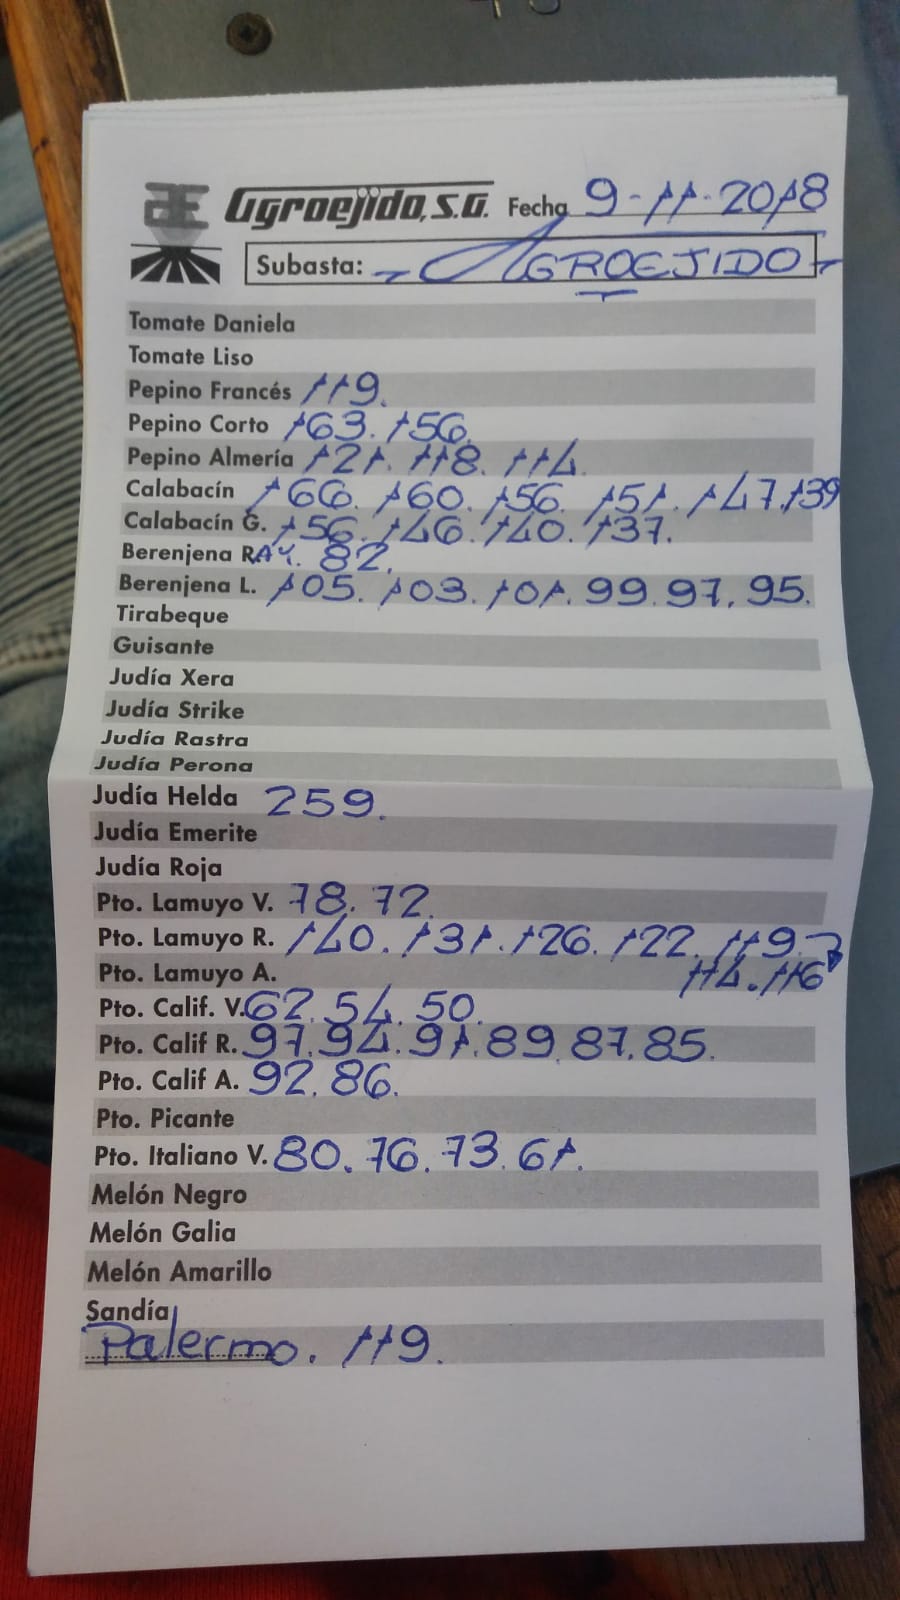 Agroejido, S.A. Fecha 9-11-2018
Subasta: - AGROEJIDO -
Tomate Daniela
Tomate Liso
Pepino Francés 119.
Pepino Corto 163. 156.
Pepino Almería 121. 118. 114.
Calabacín 166. 160. 156. 151. 147. 139
Calabacín G. 156. 146. 140. 137.
Berenjena RAY. 82.
Berenjena L. 105. 103. 101. 99. 97. 95.
Tirabeque
Guisante
Judía Xera
Judía Strike
Judía Rastra
Judía Perona
Judía Helda 259.
Judía Emerite
Judía Roja
Pto. Lamuyo V. 78. 72.
Pto. Lamuyo R. 140. 131. 126. 122. 119
Pto. Lamuyo A. 114. 116
Pto. Calif. V. 62. 54. 50.
Pto. Calif R. 97. 94. 91. 89. 87. 85.
Pto. Calif A. 92. 86.
Pto. Picante
Pto. Italiano V. 80. 76. 73. 61.
Melón Negro
Melón Galia
Melón Amarillo
Sandía
Palermo. 119.